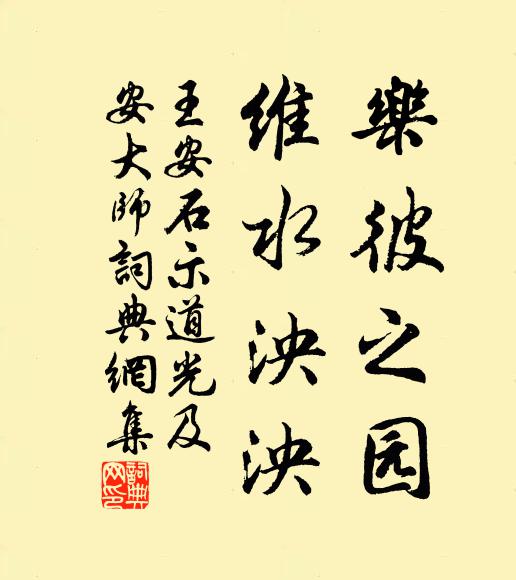 樂彼之园
维水泱泱
王安石示道光及
安大師詞典網集
詞典网印